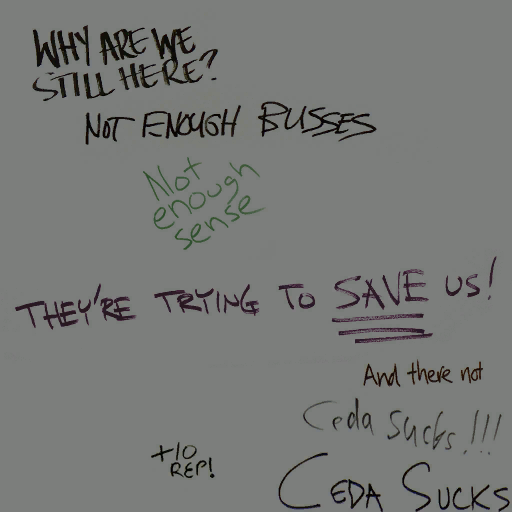 WHY ARE WE
STILL HERE?
NOT ENOUGH BUSSES
Not
enough
sense
THEY'RE TRYING TO SAVE US!
And there not
Ceda Sucks!!!
+10
REP!
CEDA SUCKS